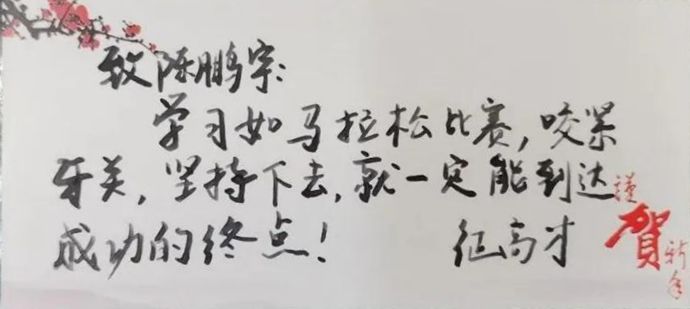 致陈鹏宇:
学习如马拉松比赛,咬紧
牙关,坚持下去,就一定能到达
成功的终点!
伍高才
谨
贺
新年